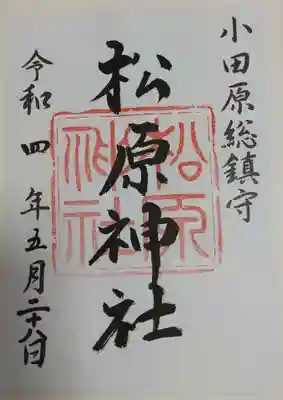 小田原総鎮守
松原神社
令和四年五月二十八日